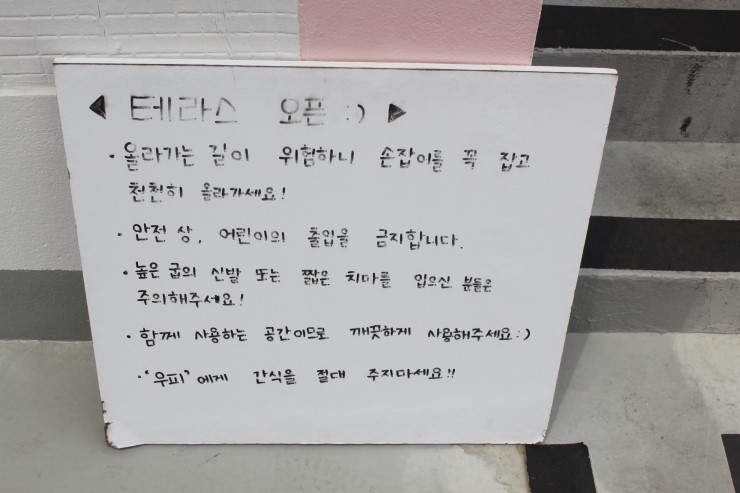 ◀ 테라스 오픈 :) ▶
· 올라가는 길이 위험하니 손잡이를 꼭 잡고
천천히 올라가세요!
· 안전 상, 어린이의 출입을 금지합니다.
· 높은 굽의 신발 또는 짧은 치마를 입으신 분들은
주의해주세요!
· 함께 사용하는 공간이므로 깨끗하게 사용해주세요 :)
· '우피'에게 간식을 절대 주지마세요!!